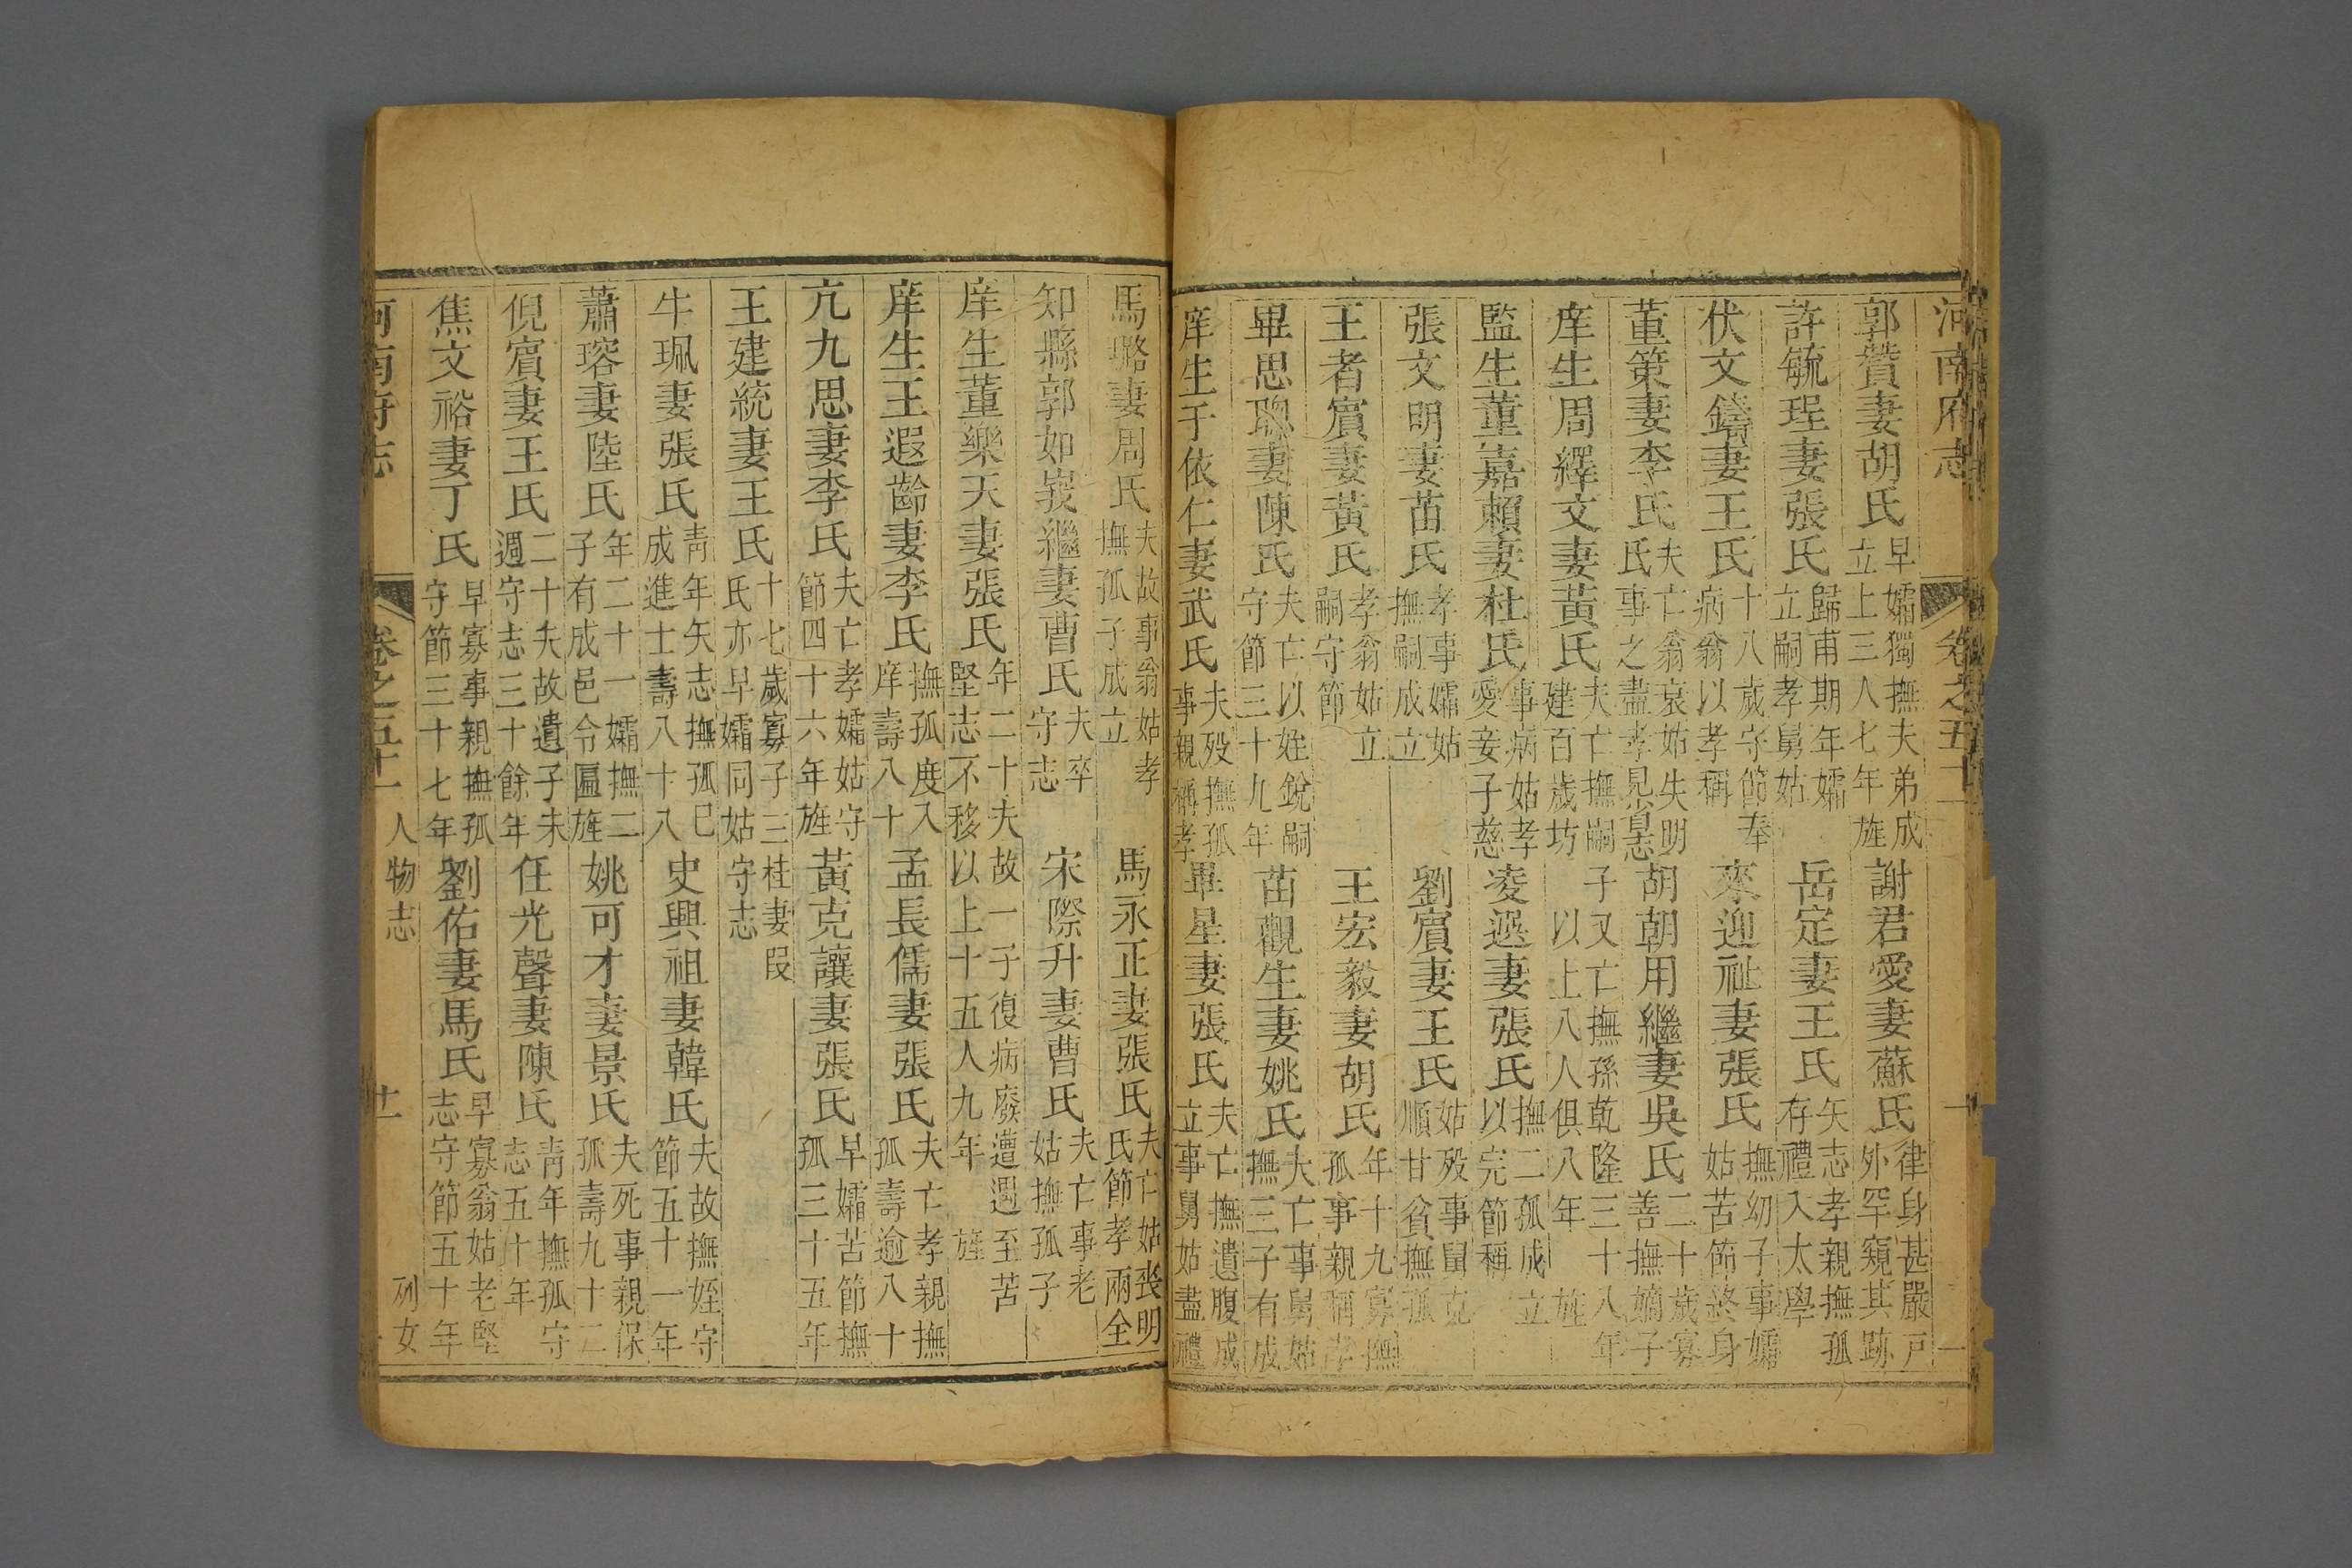 河南府志 卷之五十一
郭贊妻胡氏 早孀獨撫夫弟成立上三人七年旌 謝君愛妻蘇氏 律身甚嚴戸外罕窺其跡
許毓珵妻張氏 歸甫期年孀立嗣孝舅姑 岳定妻王氏 矢志孝親撫孤存禮入太學
伏文鑄妻王氏 十八歲守節奉病翁以孝稱 來迎祉妻張氏 撫幼子事孀姑苦節終身
董策妻李氏 夫亡翁衰姑失明氏事之盡孝 胡朝用繼妻吳氏 二十歲寡善撫嫡子
庠生周繹文妻黃氏 夫亡撫嗣子又亡撫孫乾隆三十八年建百歲坊 以上八人俱八年旌
監生董嘉賴妻杜氏 事病姑孝愛妾子慈 凌遜妻張氏 撫二孤成立以完節稱
張文明妻苗氏 孝事孀姑撫嗣成立 劉賓妻王氏 姑歿事舅克順甘貧撫孤
王者賓妻黃氏 孝翁姑立嗣守節 王宏毅妻胡氏 年十九寡撫孤事親稱孝
畢思聰妻陳氏 夫亡以姪銳嗣守節三十九年 苗觀生妻姚氏 夫亡事舅姑撫三子有成
庠生于依仁妻武氏 夫歿撫孤事親稱孝 畢星妻張氏 夫亡撫遺腹成立事舅姑盡禮
馬璐妻周氏 夫故事翁姑孝撫孤子成立 馬永正妻張氏 夫亡姑喪明氏節孝兩全
知縣郭如嶽繼妻曹氏 夫卒守志 宋際升妻曹氏 夫亡事老姑撫孤子
庠生董樂天妻張氏 年二十夫故一子復病廢遭遇至苦堅志不移以上十五人九年旌
庠生王遐齡妻李氏 撫孤度入庠壽八十 孟長儒妻張氏 夫亡孝親撫孤壽逾八十
亢九思妻李氏 夫亡孝孀姑守節四十六年旌 黃克讓妻張氏 早孀苦節撫孤三十五年
王建統妻王氏 十七歲寡子三桂妻段氏亦早孀同姑守志
牛珮妻張氏 青年矢志撫孤巳成進士壽八十八 史興祖妻韓氏 夫故撫姪守節五十一年
蕭瑢妻陸氏 年二十一孀撫二子有成邑令匾旌 姚可才妻景氏 夫死事親保孤壽九十二
倪賓妻王氏 二十夫故遺子未週守志三十餘年 任光聲妻陳氏 青年撫孤守志五十年
焦文裕妻丁氏 早寡事親撫孤守節三十七年 劉佑妻馬氏 早寡翁姑老堅志守節五十年
河南府志 卷之五十一 人物志 廿一 列女